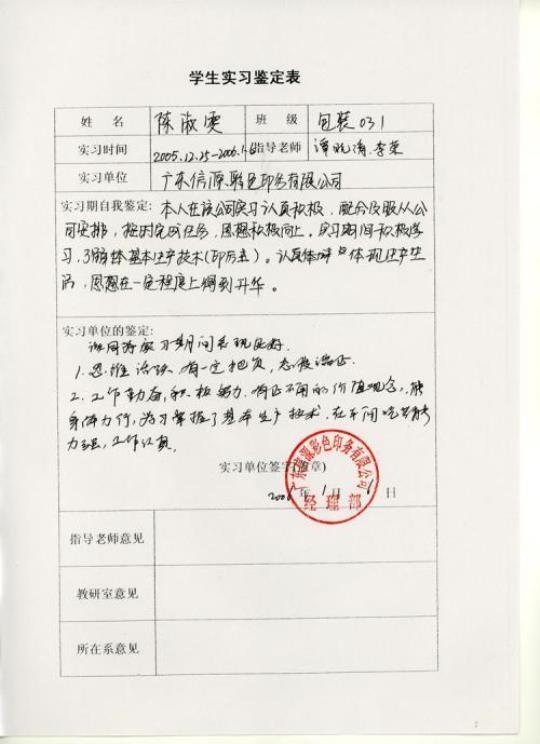 学生实习鉴定表
姓 名 陈淑雯 班 级 包装031
实习时间 2005.12.25-2006.1.6 指导老师 李荣
实习单位 广东信源彩色印务有限公司
实习期自我鉴定: 本人在该公司实习认真积极，配合及服从公
司安排，按时完成任务，思想积极向上，实习期间积极学
习，了解整体基本生产技术(印后五)。认真体味 体现生产生
活，思想在一定程度上得到升华。
实习单位的鉴定:
该同学实习期间表现良好.
1.思维活跃 有一定把员 态度端正
2.工作勤奋,积极努力. 有正不同的价值观念，能
身体力行，学习掌握了基本生产技术. 在车间吃苦耐
力强，工作认真.
实习单位签字(盖章)
广东信源彩色印务有限公司
经理部
2006年 1月 6日
指导老师意见
教研室意见
所在系意见